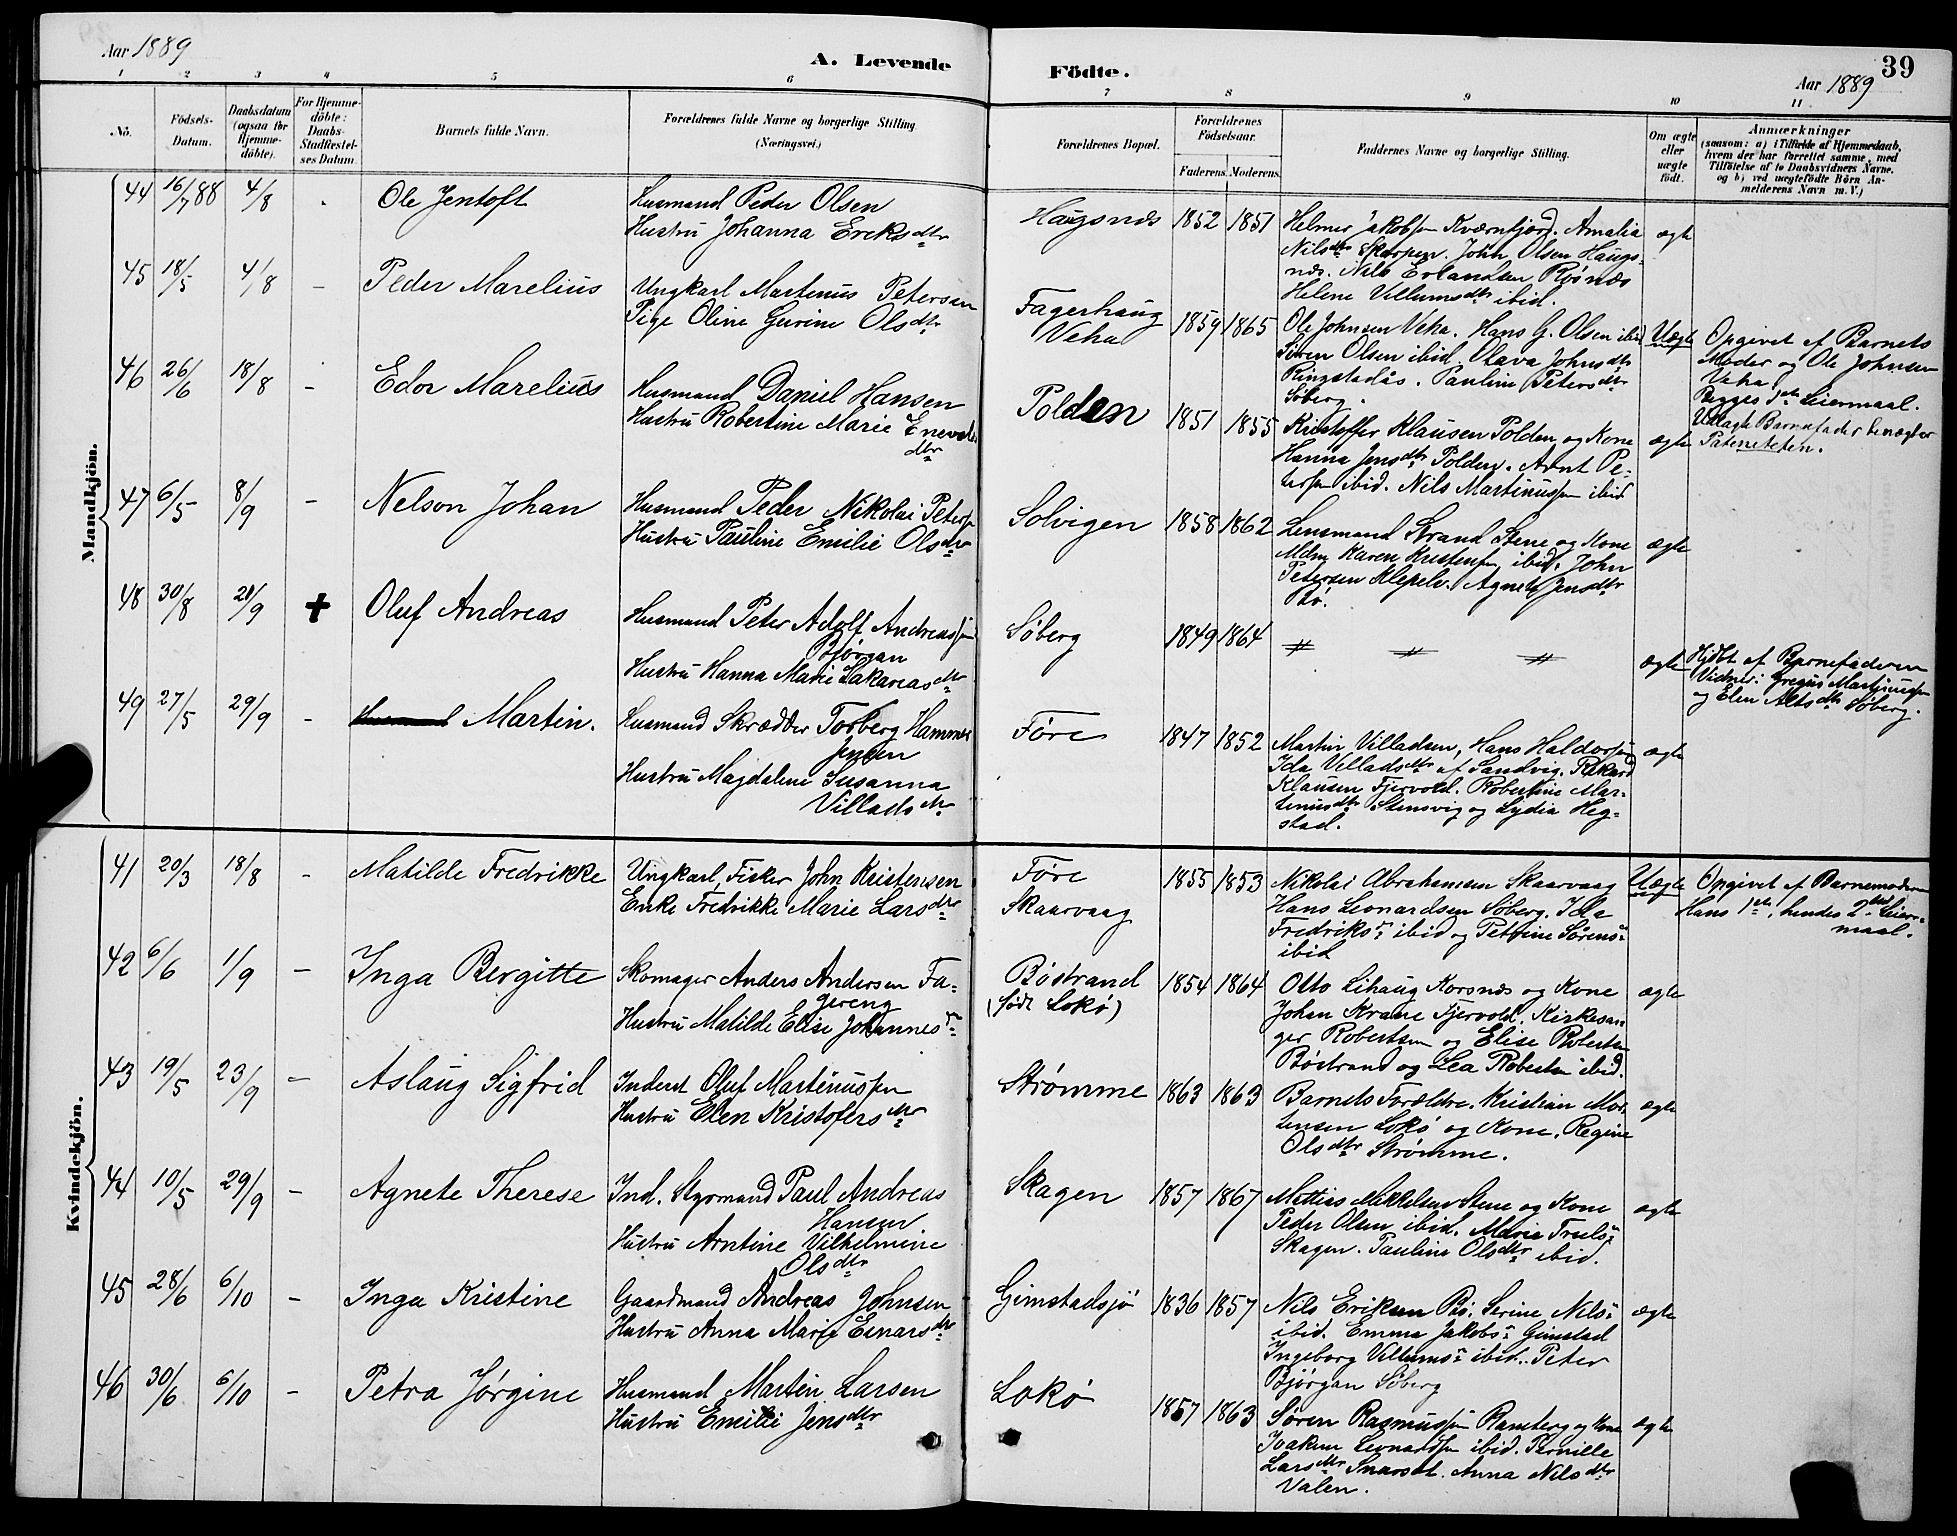 Aar 1889
A. Levende
Födte.
39
Aar 1889
1 2 3 4 5 6 7 8 9 10 11
No.
Födsels-
Datum.
Daabsdatum
(ogsaa for
Hjemme-
döbte).
For Hjemme-
döbte:
Daabs-
Stadfæstel-
ses Datum.
Barnets fulde Navn.
Forældrenes fulde Navne og borgerlige Stilling
(Næringsvei.)
Forældrenes Bopæl.
Forældrenes
Födselsaar.
Faderens. Moderens.
Faddernes Navne og borgerlige Stilling.
Om ægte
eller
uægte
födt.
Anmærkninger
(saasom: a) i Tilfælde af Hjemmedaab,
hvem der har forrettet samme, med
Tilföielse af to Daabsvidners Navne.
og b) ved uægtefödte Börn An-
melderens Navn m. V.)
Mandkjön.
44 16/7 88 4/8 Ole Jentoft
Husmand Peder Olsen
Hustru Johanna Eriksdtr
Haugsnæs 1852 1851
Helmer Jakobsen Kværnfjord. Amalia
Nilsdtr Skarpen. John Olsen Haugs-
næs. Nils Erlandsen Risnæs
Helene Villumsdtr ibid.
ægte
45 18/5 4/8 - Peder Marelius
Ungkarl Martinus Petersen
Pige Oline Gurine Olsdtr
Fagerhaug
Veha
1859 1865
Ole Johnsen Veha. Hans G. Olsen ibid
Sören Olsen ibid. Olava Johnsdtr
Ringstadås. Pauline Petersdtr
Søberg.
Uægte
Opgivet af Barnets
Moder og Ole Johnsen
Veha
Begges 1ste Leiermaal.
Udlagte Barnefader benægter
Paterniteten.
46 26/6 18/8 - Edor Marelius
Husmand Daniel Hansen
Hustru Robertine Marie Enevolds
dtr
Polden 1851 1855
Kristoffer Klausen Polden og Kone
Hanna Jensdtr Polden. Arnt Pe-
tersen ibid. Nils Martinussen ibid
ægte
47 6/5 8/9 - Nelson Johan
Husmand Peder Nikolai Petersen
Hustru Pauline Emilie Olsdtr
Solvigen 1858 1862
Lensmand Strand Stene og Kone
Mdm Karen Kristensen ibid. John
Petersen Klepele. Agnete Jensdtr
Bø.
ægte
48 30/8 20/9 + Oluf Andreas
Husmand Peter Adolf Andreassen
Bjørgan
Hustru Hanna Marie Sakariasdtr
Søberg 1849 1864
ægte
Hjdbt af Barnefaderen
Vidner: Gregus Martinussen
og Elen Altsdtr Søberg.
49 27/5 29/9 - Martin.
Husmand Skrædder Torberg Hammer
Jensen
Hustru Magdalene Susanna
Villadsdtr
Føre 1847 1852
Martin Villadsen, Hans Haldorsen
Ida Villadsdtr af Sandvig. Rikard
Klausen Fjervold. Robertine Mar-
tinusdtr Stensvig og Lydia Heg-
stad.
ægte
Kvindekjön.
41 20/3 18/8 - Matilde Fredrikke
Ungkarl, Fisker John Kristensen
Enke Fredrikke Marie Larsdtr
Føre
Skaarvaag
1855 1853
Nikolai Abrahamsen Skaarvaag
Hans Leonardsen Søberg. Ida
Fredriksdr ibid og Petrine Sørensdr
ibid
Uægte
Opgivet af Barnemoderen
Hans 1ste, hendes 2det Leier-
maal.
42 6/6 1/9 - Inga Bergitte
Skomager Anders Andersen Fa-
gereng
Hustru Matilde Elise Johannesdr
Bøstrand
(født Lokø)
1854 1864
Otto Lihaug Korsnæs og Kone
Johan Krane Fjervold. Kirkesan-
ger Robertsen og Elise Robertsen
Bøstrand og Lea Robertsen ibid.
ægte
43 19/5 23/9 - Aslaug Sigfrid
Inderst Oluf Martinussen
Hustru Elen Kristofersdtr
Strømme 1863 1863
Barnets Forældre. Kristian Mor-
tensen Lokø og Kone. Regine
Olsdtr Strømme.
ægte
44 10/5 29/9 - Agnete Therese
Ind. Styrmand Paul Andreas
Hansen
Hustru Arntine Vilhelmine
Olsdtr
Skagen 1857 1867
Mattias Mikkelsen Stene og Kone
Peder Olsen ibid. Marie Truelsdr
Skagen. Pauline Olsdtr ibid.
ægte
45 28/6 6/10 - Inga Kristine
Gaardmand Andreas Johnsen
Hustru Anna Marie Einarsdtr
Gimstadsjø 1836 1857
Nils Eriksen Bø. Serine Nilsdr
ibid. Emma Jakobsdr Gimstad
Ingeborg Villumsdr ibid. Peter
Bjørgan Søberg
ægte
46 30/6 6/10 - Petra Jørgine
Husmand Martin Larsen
Hustru Emilie Jensdtr
Lokø 1857 1863
Søren Rasmussen Ramberg og Kone
Joakim Leonardsen ibid. Pernille
Larsdtr Snarset. Anna Nilsdtr
Valen.
ægte